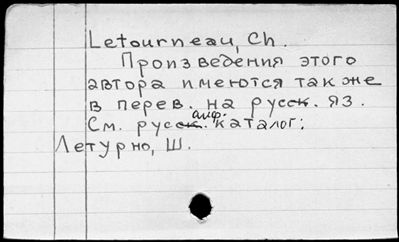 Letourneau, Ch.
Произведения этого
автора имеются также
в перев. на русск. яз.
См. русск. алф. каталог:
Летурно, Ш.